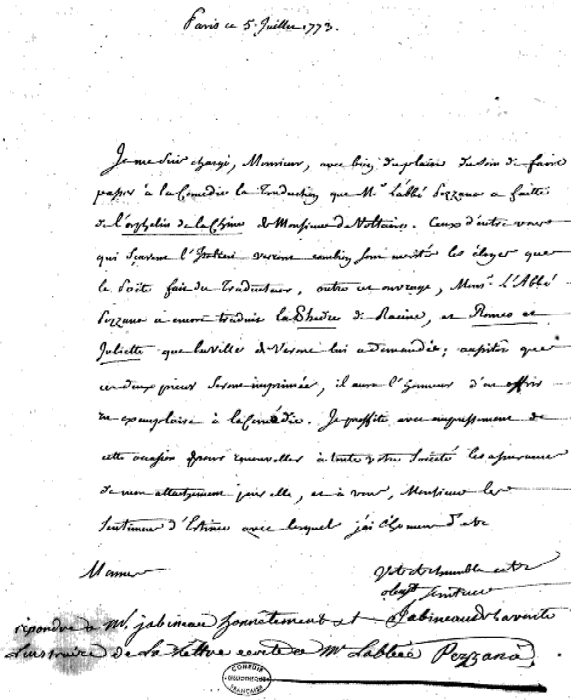 Paris ce 5. Juillet 1773.
Je me suis chargé, Monsieur, avec bien du plaisir du soin de faire
passer à la Comedie la Traduction que Mr. l'abbé Pezzana a faitte
de l'orphelin de la Chine de Monsieur de Voltaire. Ceux d'entre vous
qui scavent l'Italien verront combien sont merités les éloges que
le Poëte fait du Traducteur, outre cet ouvrage, Monsr. l'Abbé
Pezzana a encore traduit la Phedre de Racine, et Romeo et
Juliette que la ville de Verone lui a demandée; aussitôt que
ces deux pieces seront imprimées, il aura l'honneur d'en offrir
un exemplaire à la Comédie. Je proffite avec empressement de
cette occasion pour renouveller à toute votre Societé les assurances
de mon attachement pour elle, et à vous, Monsieur les
sentimens d'Estime avec lesquels j'ai l'honneur d'etre
Monsieur
Votre très humble et tres
obeist serviteur
Jabineau de la voute
répondre a Mr. jabineau honnêtement et
de la lettre ecrite a Mr Labbée Pezzana.
COMÉDIE
BIBLIOTHÈQUE
FRANÇAISE